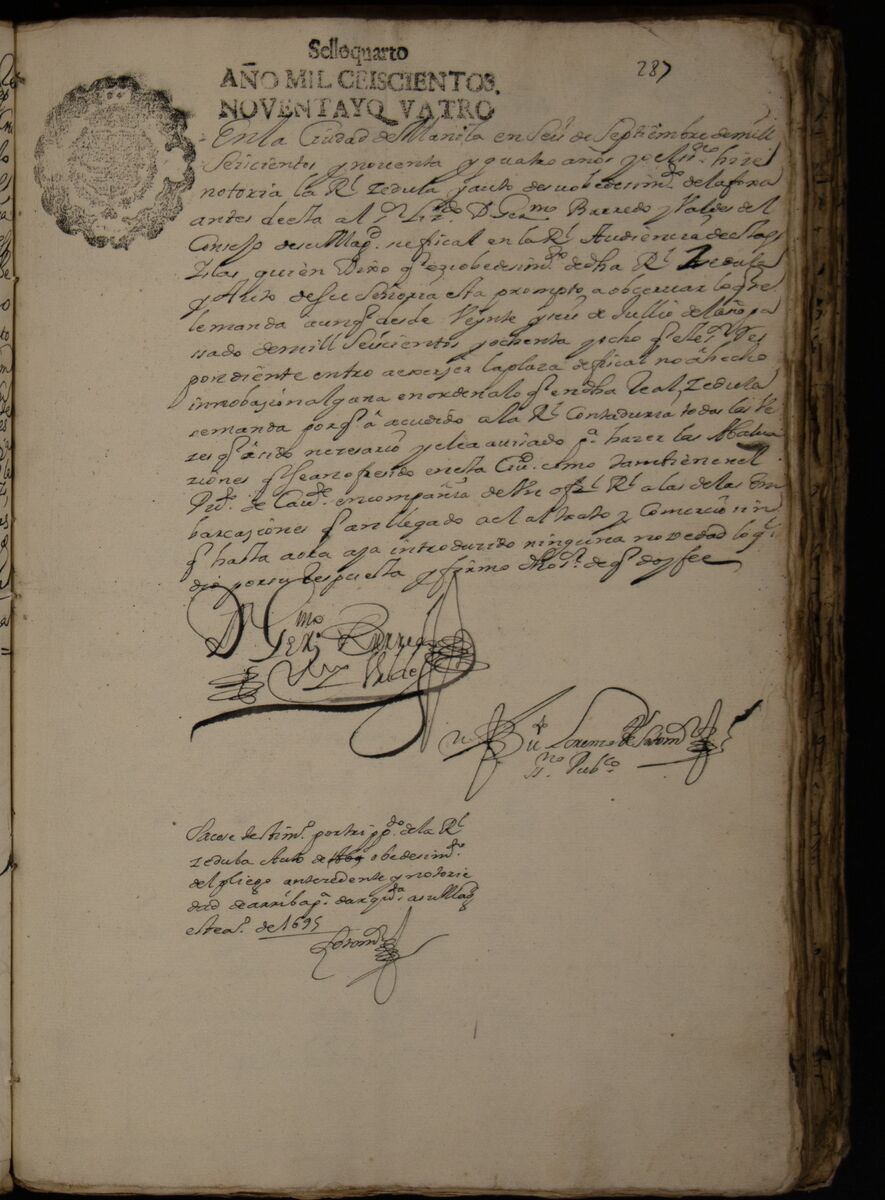 287
Selloquarto
AÑO MIL CEISCIENTOS.
NOVENTAYQVATRO
En la Ciudad de Manila en Seis de Septiembre de mill
Seiscientos y noventa y quatro años yo el ss.no hize
notoria la Rl Zedula y auto de su obedesim.to de la foxa
antes de esta al Lizdo D Germo Barredo y Valdes del
Consejo de su Magd su fiscal en la Rl Audiencia de estas
Yslas, quien Dixo qe en obedesim.to de dha Rl Zedula
y Auto de su Señoria esta prompto a obseruar lo qe se
le manda aunqe desde Veynte y seis de Jullio del año pa
ssado de mill Seiscientos y ochenta y ocho qe el
pondiente entro a exerser la plaza de fiscal no à hecho
innobasion alguna en orden a lo qe en dha Real Zedula
se manda porqe à acudido a la Rl Contaduria todas las Ve
zes qe à sido nesesario y se le a auisado pa hazer las Abalua
ziones qe se an ofresido en esta Ciud. como tambien en el
Pto. de Caue. en compañia de Vn ofl Rl a las de las Em
barcasiones qe an llegado a el al trato y Comercio sin
qe hasta aora aya introdusido ninguna nouedad lo qe
dio por su Respuesta y firmo de qe doy fee
Dn Germo Barredo
y Valdes
Lorenzo
ss.no Pubco
Sacose testimo. por tripdo. de la Rl
Zedula Auto de obedesimto.
del pliego antesedente y notorie
dad de arriba pa. dar qta. a su Magd
este ao. de 1695